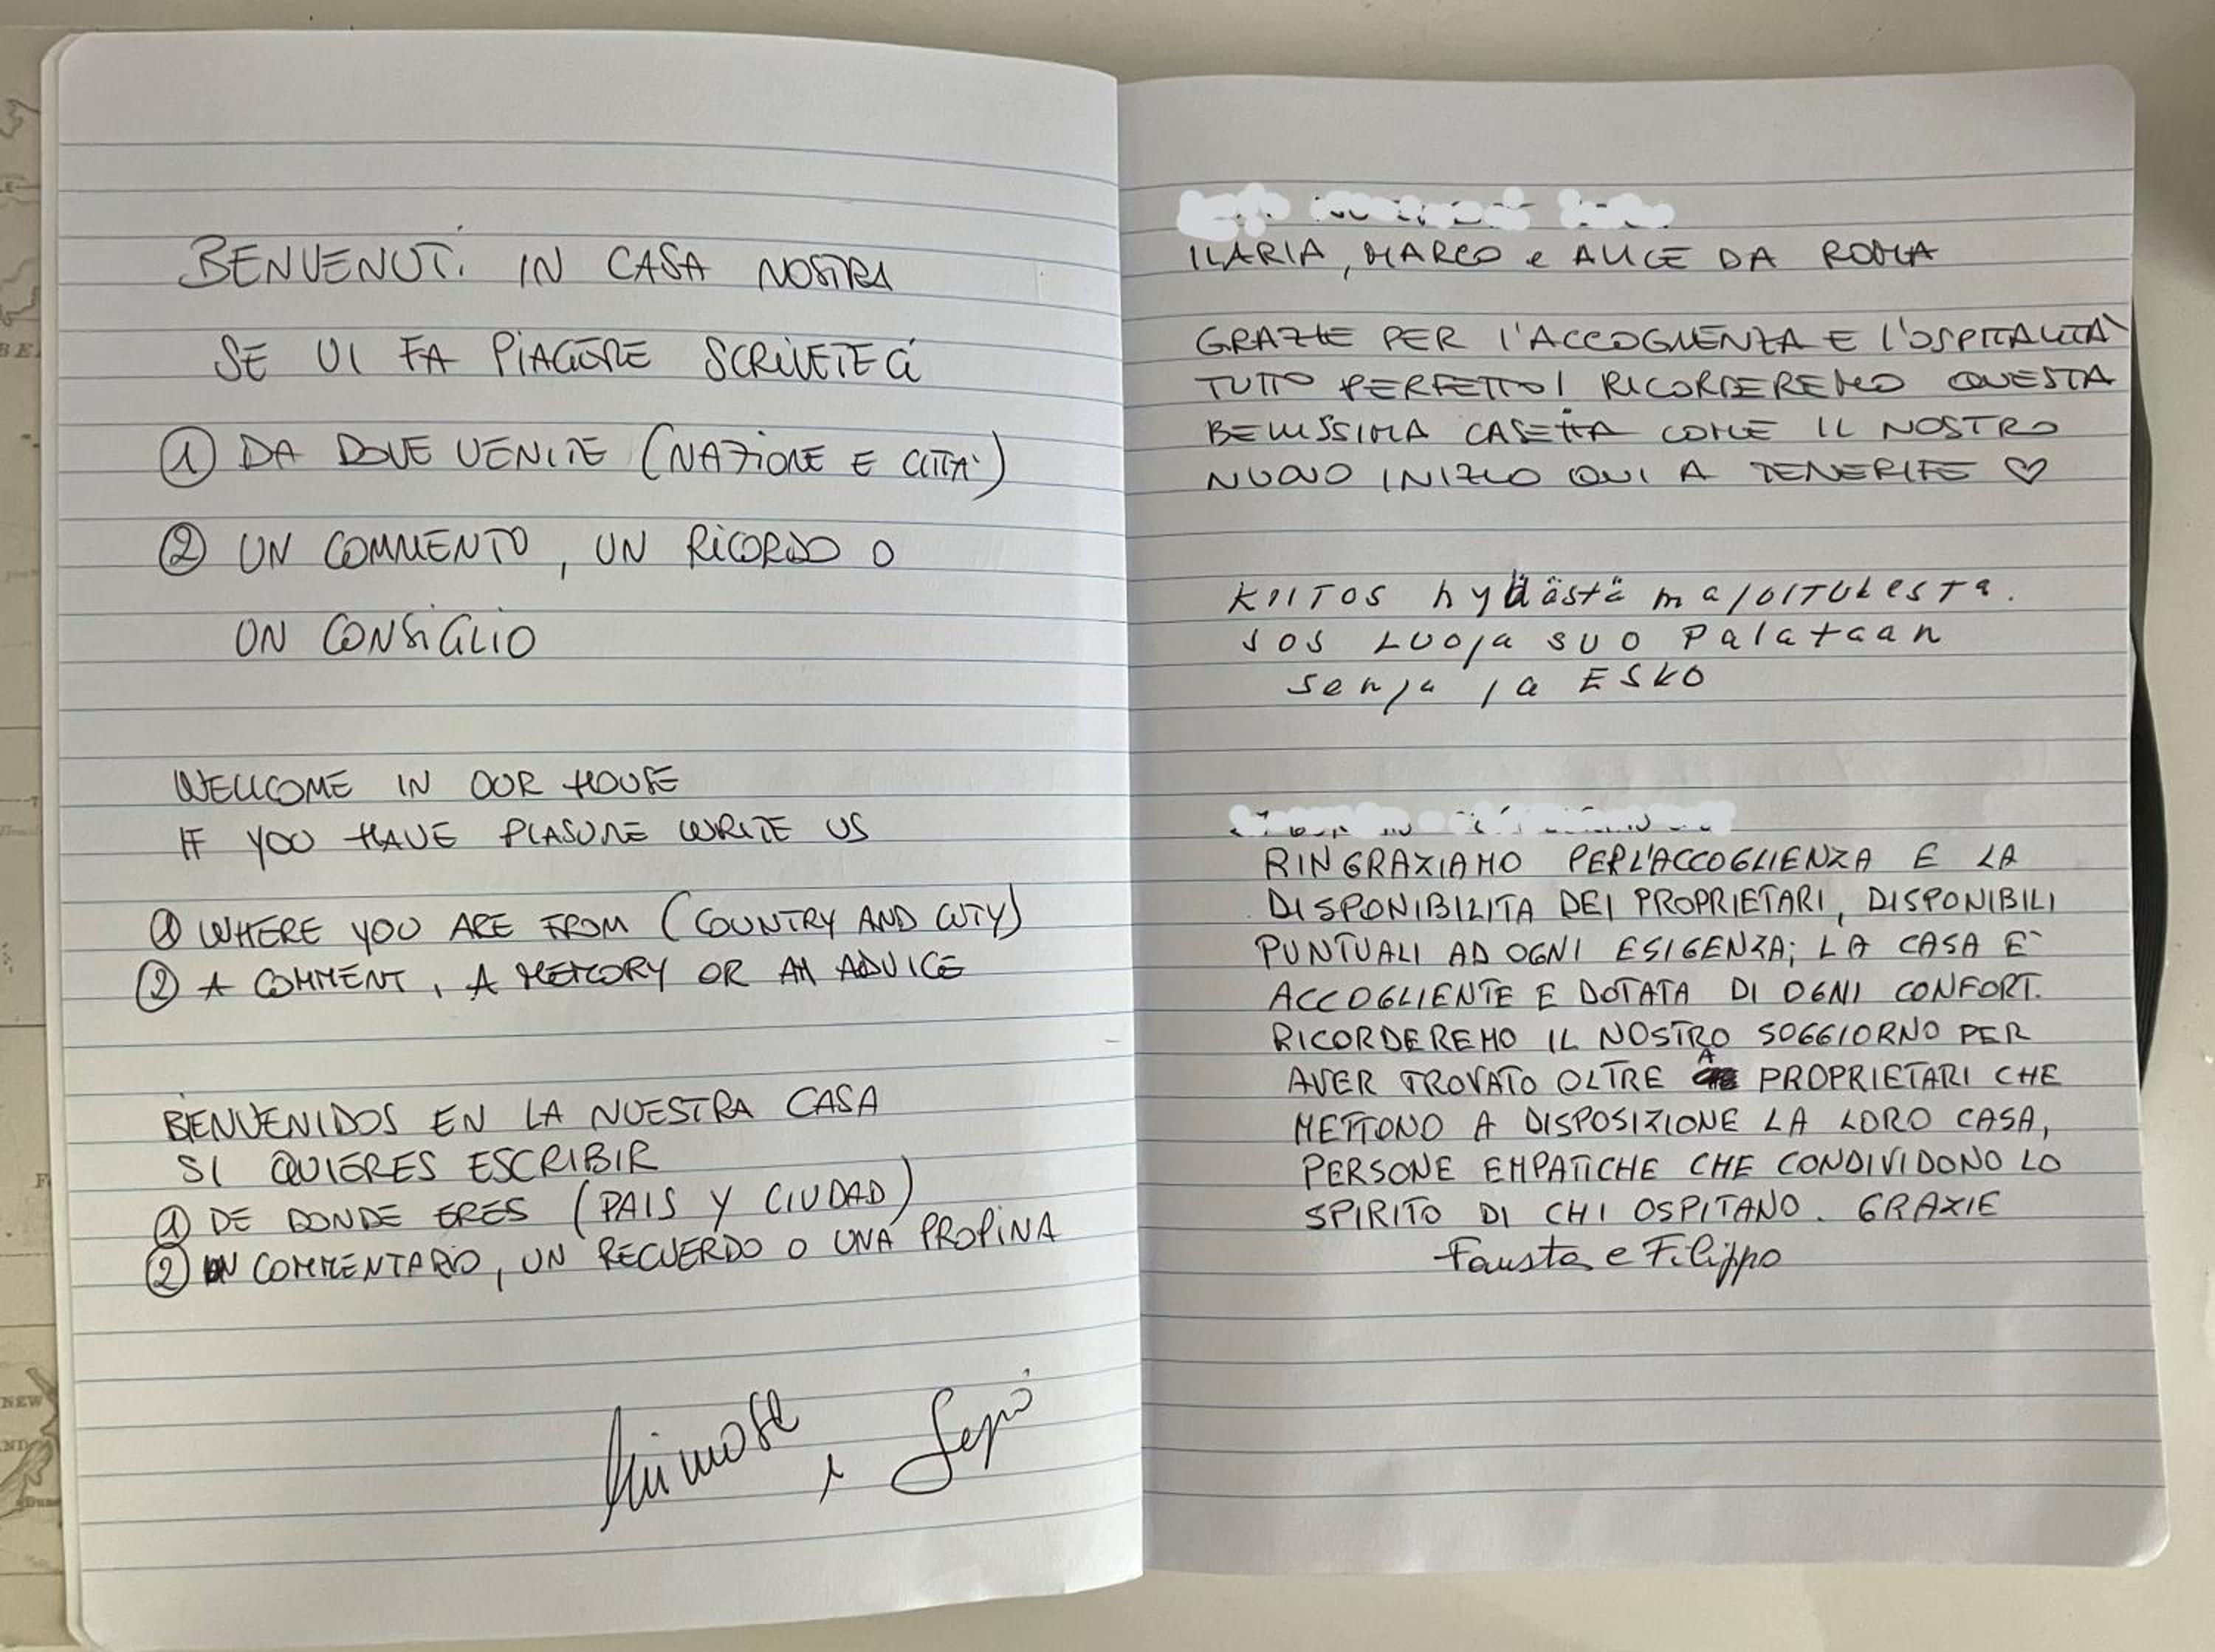 BENVENUTI IN CASA NOSTRA
SE VI FA PIACERE SCRIVETECI
① DA DOVE VENITE (NAZIONE E CITTA')
② UN COMMENTO, UN RICORDO O
UN CONSIGLIO
WELLCOME IN OUR HOUSE
IF YOU HAVE PLASURE WRITE US
① WHERE YOU ARE FROM (COUNTRY AND CITY)
② A COMMENT, A MEMORY OR AN ADVICE
BIENVENIDOS EN LA NUESTRA CASA
SI QUIERES ESCRIBIR
① DE DONDE ERES (PAIS Y CIUDAD)
② UN COMMENTARIO, UN RECUERDO O UNA PROPINA
ILARIA, MARCO e ALICE DA ROMA
GRAZIE PER L'ACCOGLIENZA E L'OSPITALITÀ
TUTTO PERFETTO! RICORDEREMO QUESTA
BELLISSIMA CASETTA COME IL NOSTRO
NUOVO INIZIO QUI A TENERIFE ♡
KIITOS hyvästä majoituksesta.
JOS LUOja SUO Palataan
Senja ja ESKO
RINGRAZIAMO PER L'ACCOGLIENZA E LA
DISPONIBILITA DEI PROPRIETARI, DISPONIBILI
PUNTUALI AD OGNI ESIGENZA; LA CASA E'
ACCOGLIENTE E DOTATA DI OGNI CONFORT.
RICORDEREMO IL NOSTRO SOGGIORNO PER
AVER TROVATO OLTRE A PROPRIETARI CHE
METTONO A DISPOSIZIONE LA LORO CASA,
PERSONE EMPATICHE CHE CONDIVIDONO LO
SPIRITO DI CHI OSPITANO. GRAZIE
Fausta e Filippo